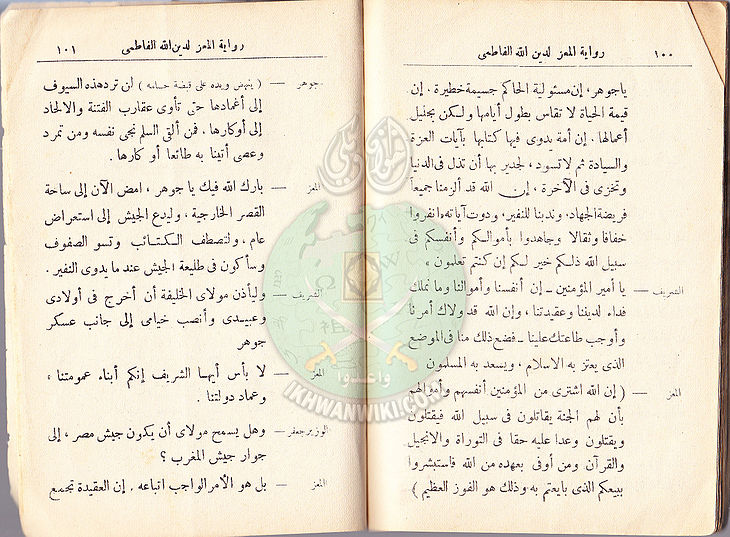 رواية المعز لدين الله الفاطمى ١٠٠
ياجوهر، إن مسئولية الحاكم جسيمة خطيرة . إن
قيمة الحياة لا تقاس بطول أيامها ولكن بجليل
أعمالها . إن أمة يدوى فيها كتابها بآيات العزة
والسيادة ثم لا تسود ، لجدير بها أن تذل فى الدنيا
وتخزى فى الآخرة ، إن الله قد ألزمنا جميعاً
فريضة الجهاد، وندبنا للنفير، ودوت آياته «انفروا
خفافا وثقالا وجاهدوا بأموالكم وأنفسكم فى
سبيل الله ذلكم خير لكم إن كنتم تعلمون »
الشريف — يا أمير المؤمنين – إن أنفسنا وأموالنا وما نملك
فداء لديننا وعقيدتنا ، وإن الله قد ولاك أمرنا
وأوجب طاعتك علينا – فضع ذلك منا فى الموضع
الذى يعتز به الاسلام ، ويسعد به المسلمون
المعز — ( إن الله اشترى من المؤمنين أنفسهم وأموالهم
بأن لهم الجنة يقاتلون فى سبيل الله فيقتلون
ويقتلون وعدا عليه حقا فى التوراة والانجيل
والقرآن ومن أوفى بعهده من الله فاستبشروا
ببيعكم الذى بايعتم به وذلك هو الفوز العظيم )
رواية المعز لدين الله الفاطمى ١٠١
جوهر — ( ينهض ويده على قبضة حسامه ) لن ترد هذه السيوف
إلى أغمادها حتى تأوى عقارب الفتنة والالحاد
إلى أوكارها . فمن ألقى السلم نجى نفسه ومن تمرد
وعصى أتينا به طائعا أو كارها .
المعز — بارك الله فيك يا جوهر ، امض الآن إلى ساحة
القصر الخارجية ، وليدع الجيش إلى استعراض
عام ، ولتصطف الكتائب وتسو الصفوف
وسأكون فى طليعة الجيش عند ما يدوى النفير .
الشريف — وليأذن مولاى الخليفة أن أخرج فى أولادى
وعبيدى وأنصب خيامى إلى جانب عسكر
جوهر
المعز — لا بأس أيها الشريف إنكم أبناء عمومتنا ،
وعماد دولتنا .
الوزير جعفر — وهل يسمح مولاى أن يكون جيش مصر ، إلى
جوار جيش المغرب ؟
المعز — بل هو الأمر الواجب اتباعه . إن العقيدة تجمع
وأعدوا
IKHWANWIKI.COM